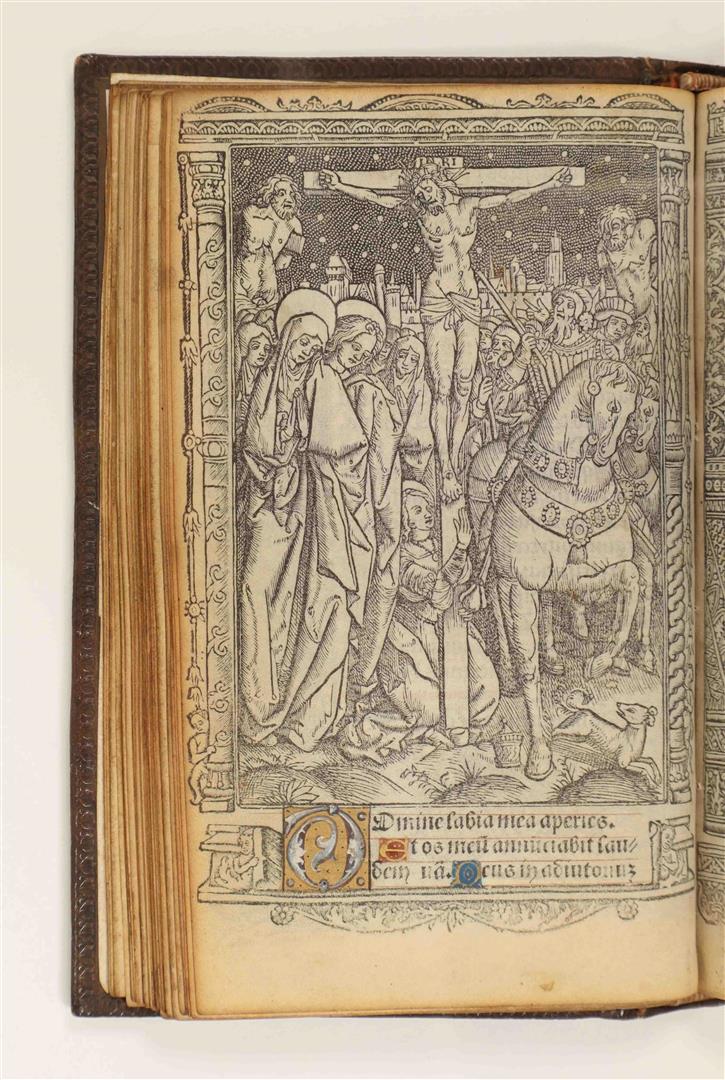 INRI
Omine labia mea aperies.
Et os meũ annũciabit lau-
dem tuã. Deus in adiutoriuz